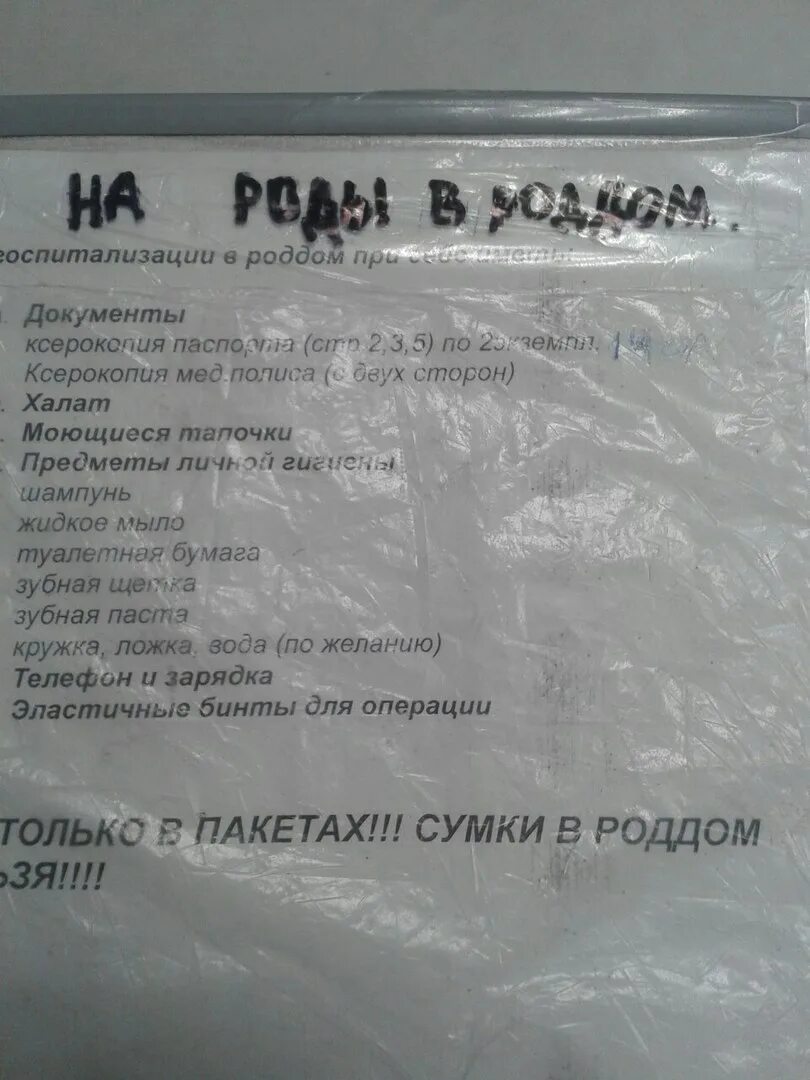 НА РОДЫ В РОДДОМ..
госпитализации в роддом при себе иметь:
Документы
ксерокопия паспорта (стр 2,3,5) по 2экземпл.
Ксерокопия мед.полиса (с двух сторон)
Халат
Моющиеся тапочки
Предметы личной гигиены
шампунь
жидкое мыло
туалетная бумага
зубная щетка
зубная паста
кружка, ложка, вода (по желанию)
Телефон и зарядка
Эластичные бинты для операции
ТОЛЬКО В ПАКЕТАХ!!! СУМКИ В РОДДОМ
ЬЗЯ!!!!